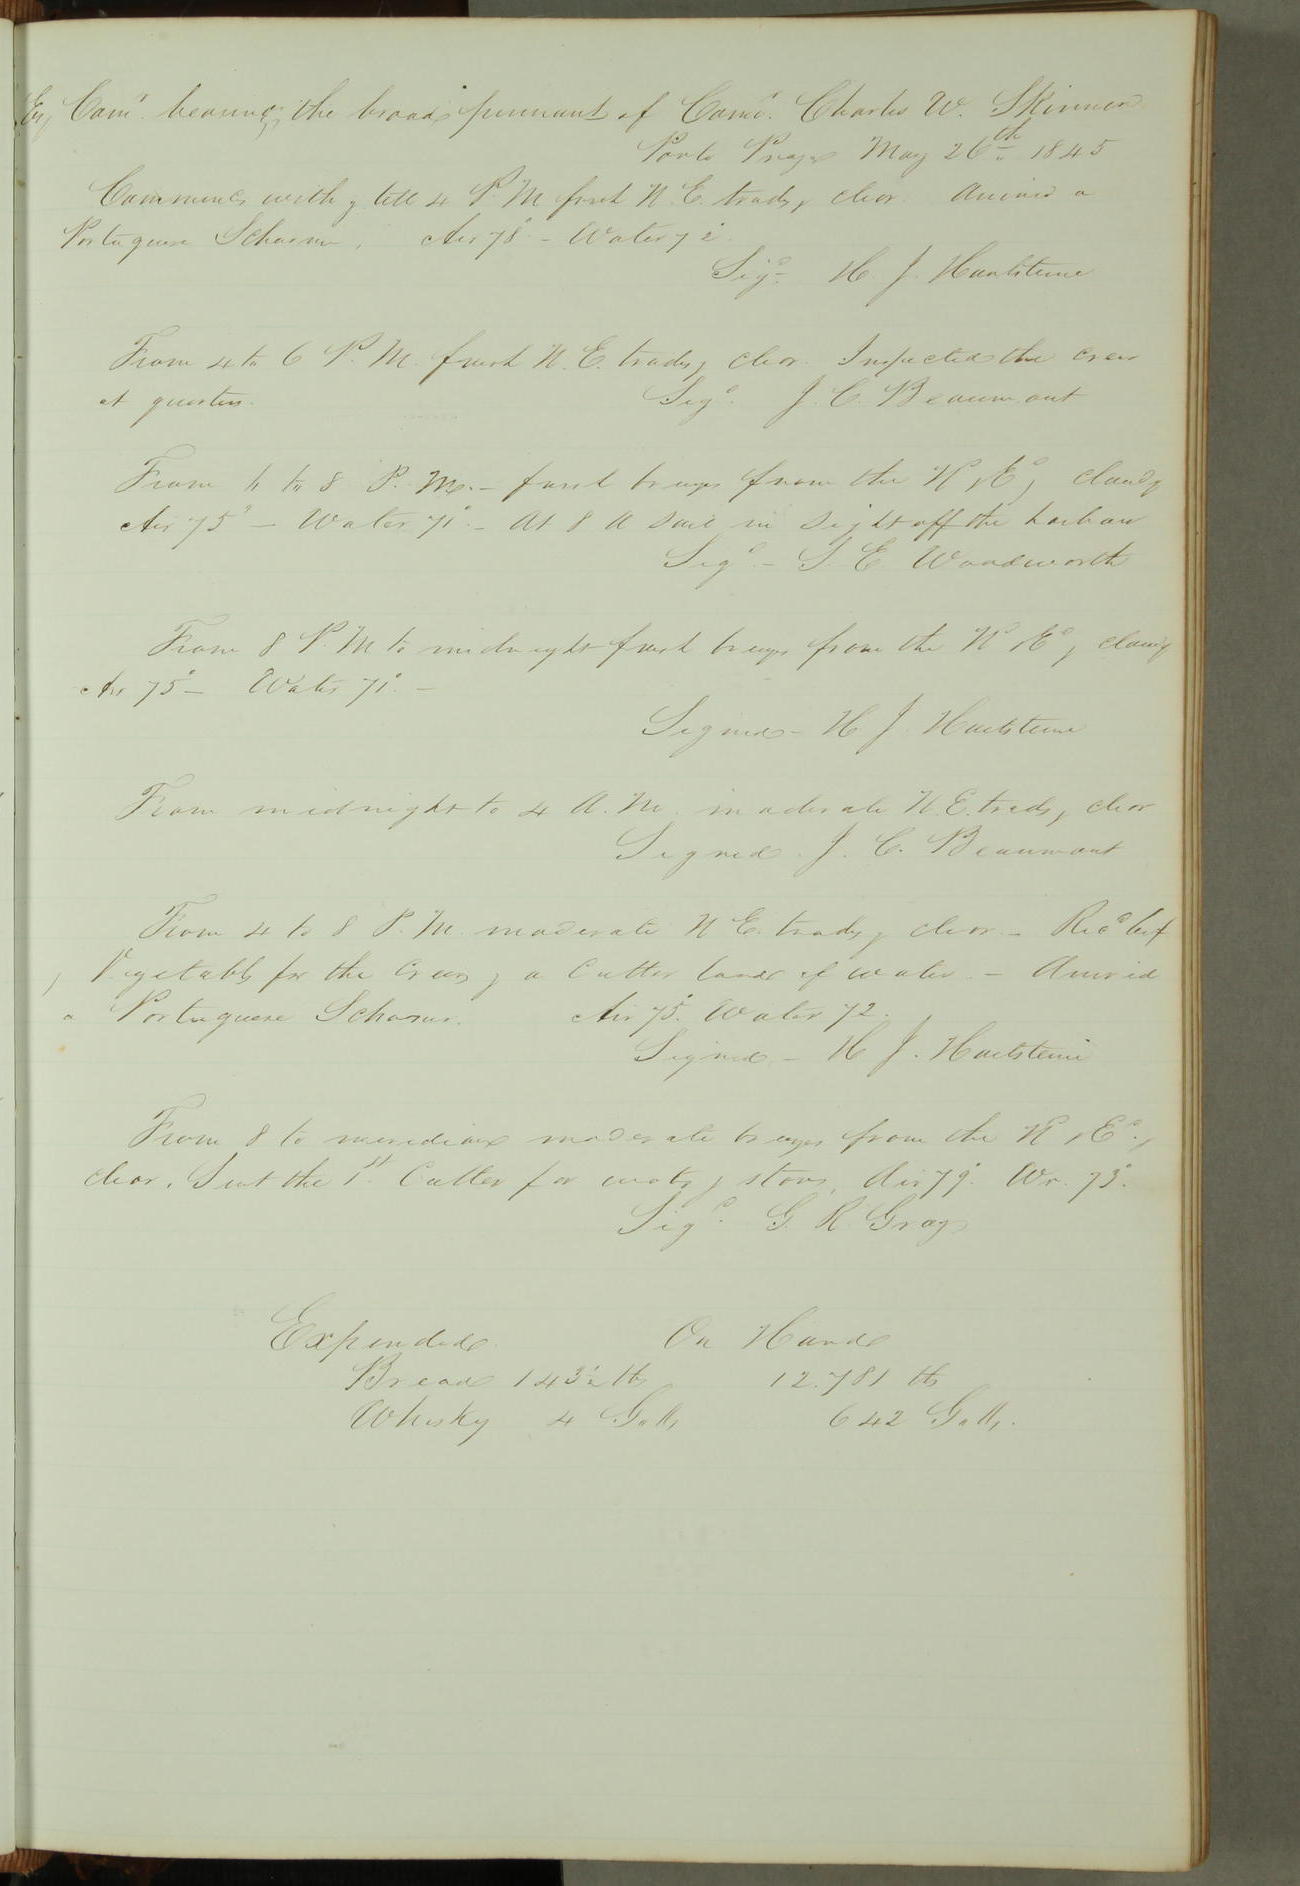 Esq Comr. bearing the broad pennant of Como. Charles W. Skinner
Porto Praya May 26th 1845
Commences with & till 4 P.M fresh N.E. trades & clear. Arrived a
Portuguese Schooner. Air 78° - Water 72°.
Sigd. H. J. Hartstene
From 4 to 6 P.M. fresh N.E. trades & clear. Inspected the crew
at quarters. Sigd. J. C. Beaumont
From 6 to 8 P.M. - fresh breezes from the Nd & Ed & cloudy
Air 75° - Water 71°. - At 8 a sail in sight off the harbour
Sigd. - S. E. Woodworth
From 8 P.M to midnight fresh breezes from the Nd & Ed & cloudy
Air 75° - Water 71°. -
Signed - H J. Hartstene
From midnight to 4 A.M. moderate N.E. trades & clear
Signed. J. C. Beaumont
From 4 to 8 P.M. moderate N E. trades & clear. - Recd beef
& Vegetables for the crew & a Cutter load of water. - Arrived
a Portuguese Schooner. Air 75°. Water 72.
Signed - H J. Hartstene
From 8 to meridian moderate breezes from the Nd & Ed. &
clear. Sent the 1st. Cutter for water & stores. Air 79°. Wr. 73°.
Sigd. G. R. Gray
Expended On Hand
Bread 143½ lbs 12.781 lbs
Whisky 4 Galls 642 Galls.